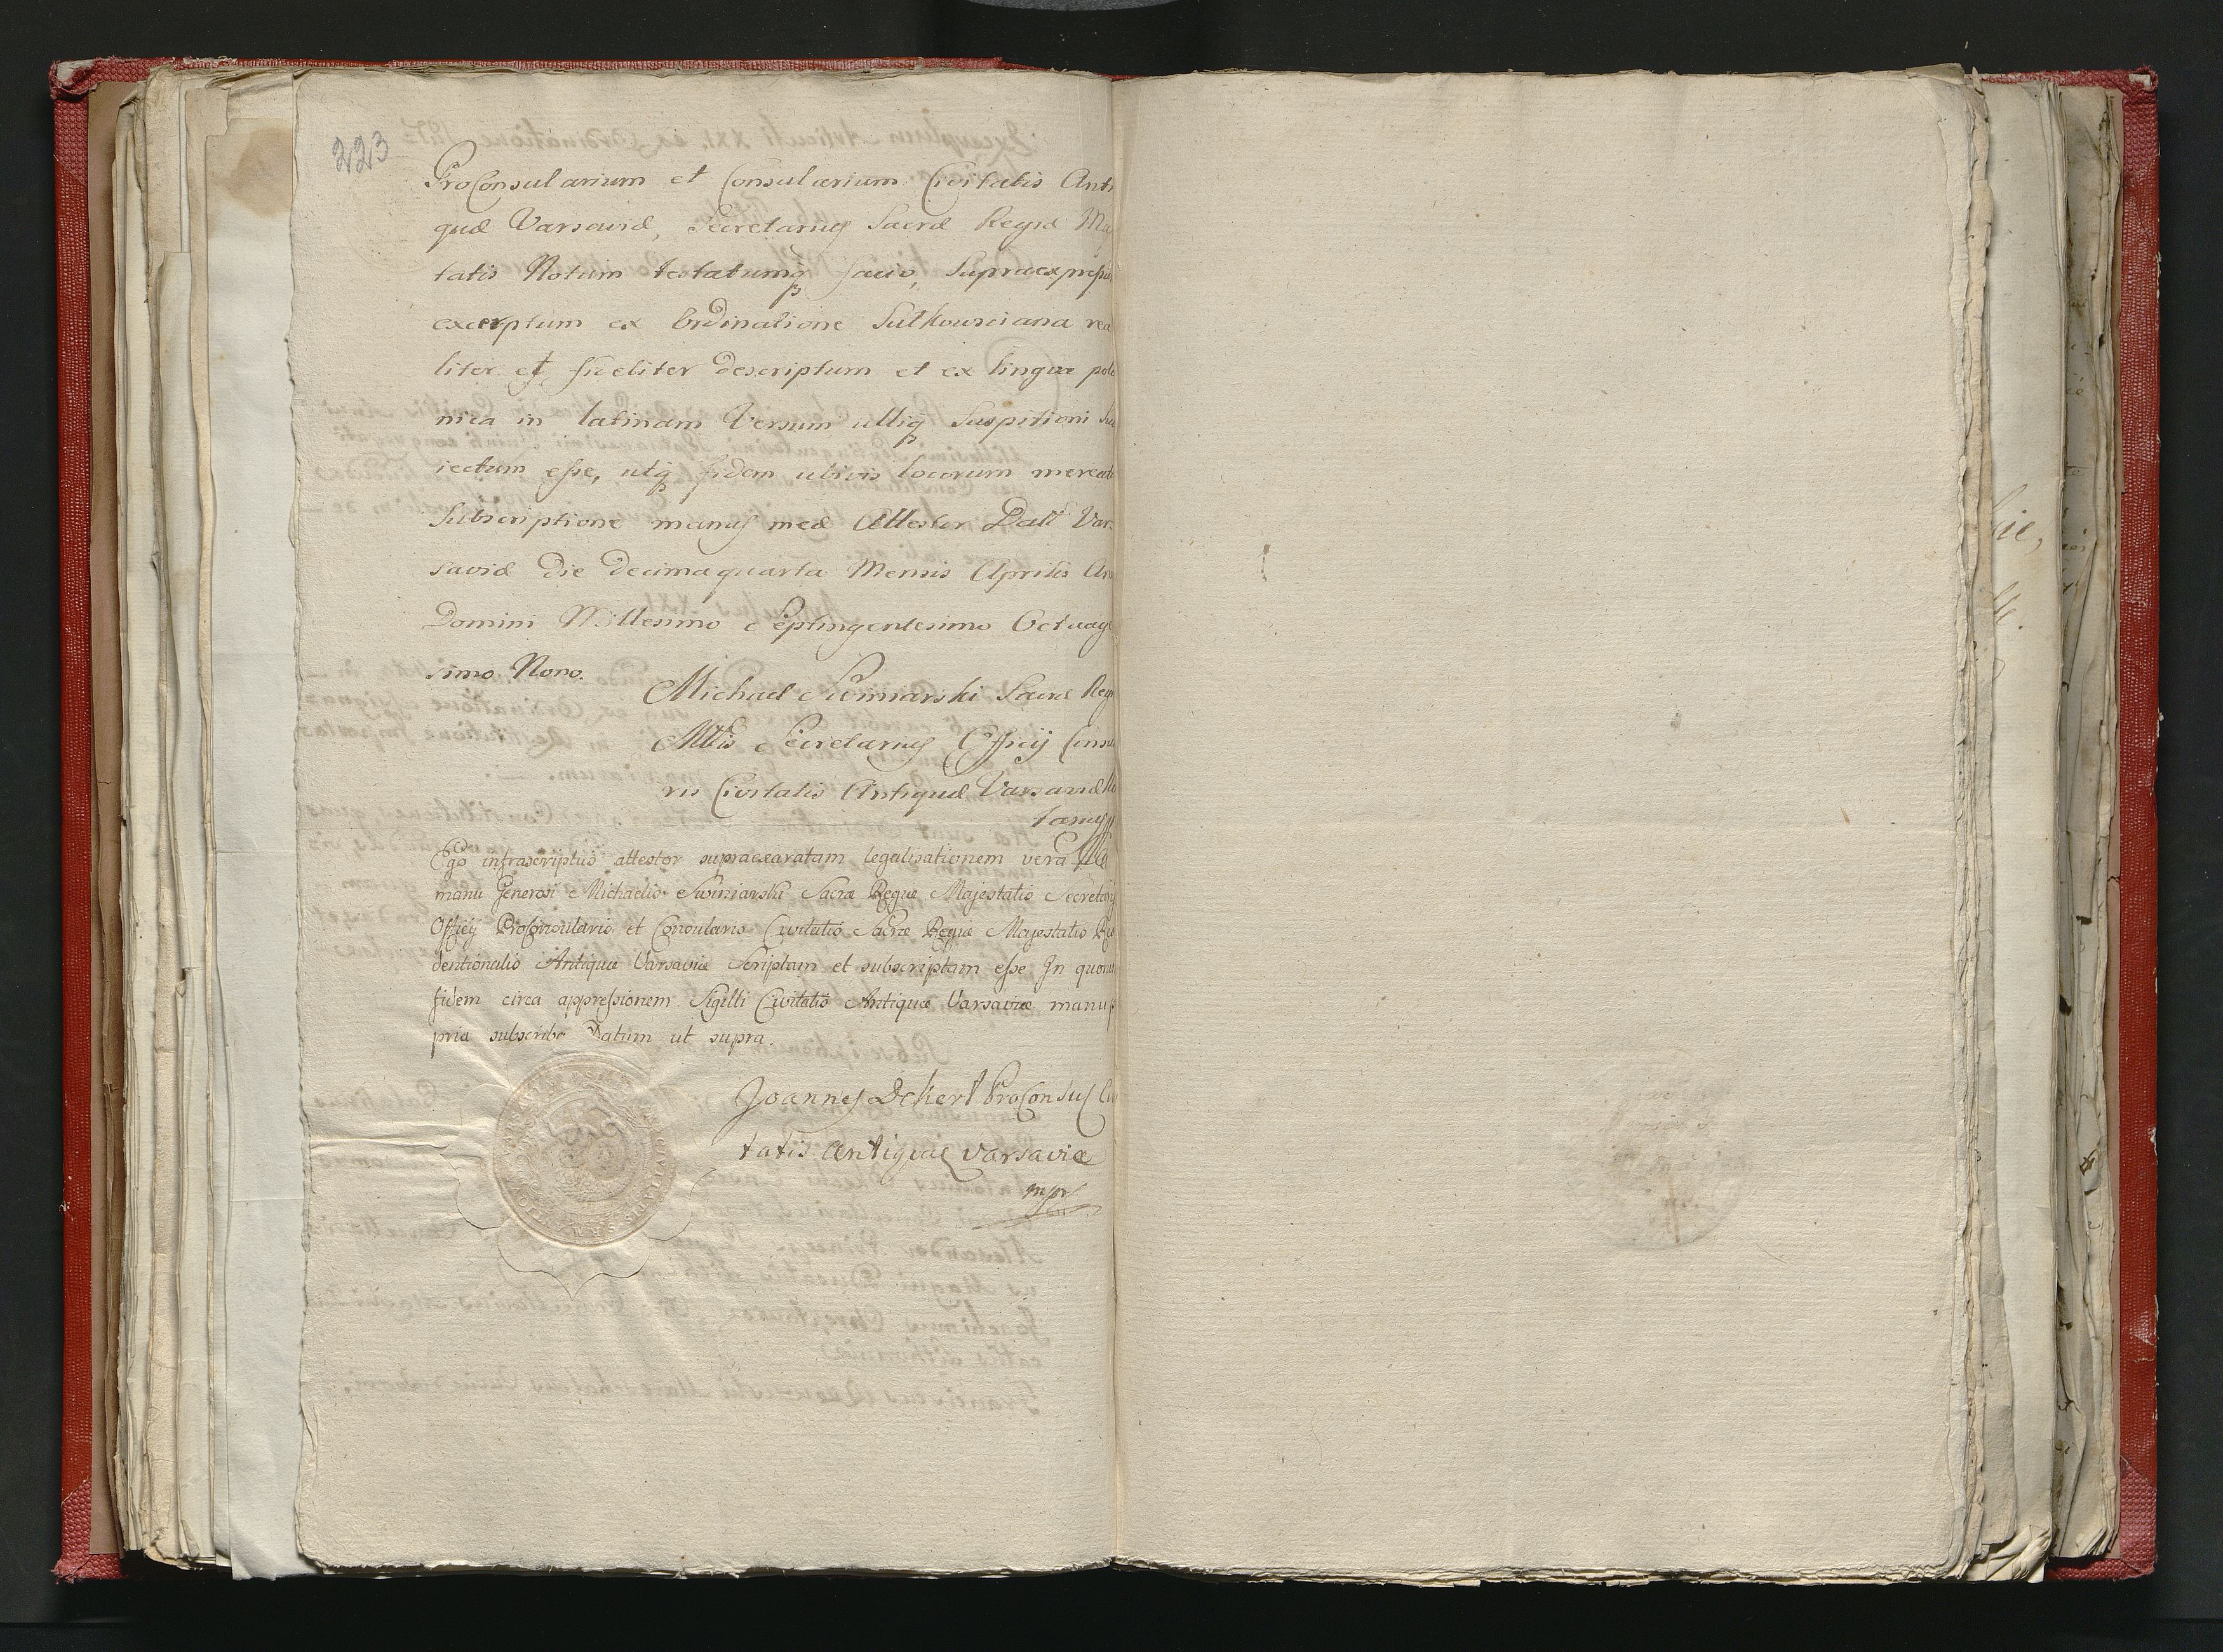 223
ProConsularium et Consularium Civitatis Anti
quæ Varsaviæ, Secretarius Sacræ Regiæ Maj
tatis Notum testatumq facio, Supraexpressu
excerptum ex Ordinatione Sulkousciana rea
liter et fideliter descriptum et ex lingua polo
nica in latinam Versum ulliq Suspitioni Su
iectum esse, utq fidem ubivis locorum mereat
Subscriptione manus meæ Attestor Datt Var
saviæ Die Decima quarta Mensis Aprilis An
Domini Millesimo Septingentesimo Octuage
simo Nono.
Michael Swiniarski Sacræ Reg
Mttis Secretarius Officij Consu
ris Civitatis Antiquæ Varsaviæ No
tarius
Ego infrascriptus attestor supraexaratam legalisationem vera
manu Generosi Michaelis Swiniarski Sacræ Regiæ Majestatis Secretarij
Officij ProConsularis et Consularis Civitatis Sacræ Regiæ Majestatis Re
dentionalis Antiquæ Varsaviæ Scriptam et subscriptam esse In quorum
fidem circa appressionem Sigilli Civitatis Antiquæ Varsaviæ manu p
pria subscribo Datum ut supra.
Joannes Dekert ProConsul Civi
tatis Antiquæ Varsaviæ
mpr